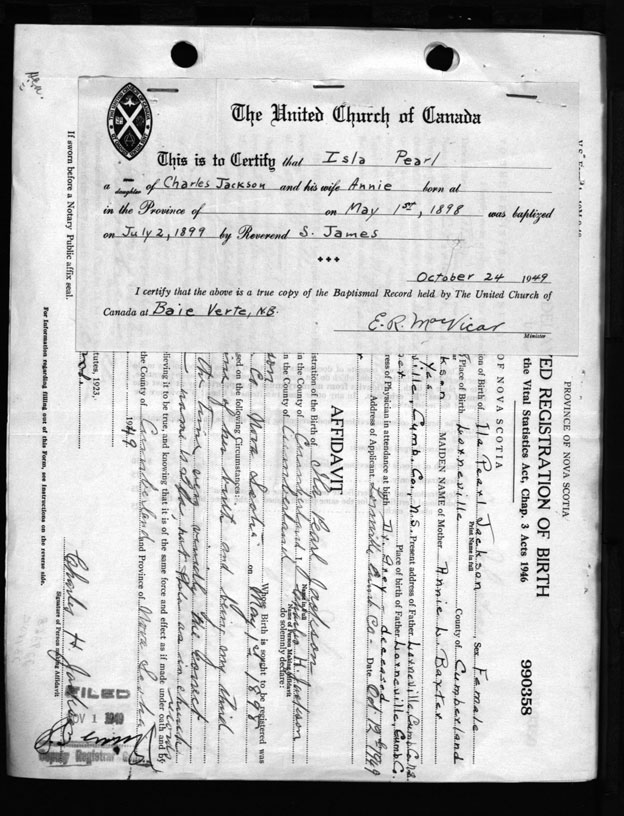 The United Church of Canada
This is to Certify that Isla Pearl
a daughter of Charles Jackson and his wife Annie born at
in the Province of on May 1st, 1898 was baptized
on July 2, 1899 by Reverend S. James
October 24 1949
I certify that the above is a true copy of the Baptismal Record held by The United Church of
Canada at Baie Verte, N.B.
E. R. MacVicar
Minister
PROVINCE OF NOVA SCOTIA
ED REGISTRATION OF BIRTH
990358
the Vital Statistics Act, Chap. 3 Acts 1946
OF NOVA SCOTIA
on of Birth of Ila Pearl Jackson Sex Female
Print Name in full
Place of Birth Lorneville County of Cumberland
kson MAIDEN NAME of Mother Annie L. Baxter
ville, Cumb. Co., N.S. Present address of Father Lorneville, Cumb. Co. N.S.
Place of birth of Father Lorneville, Cumb. C.
ress of Physician in attendance at birth Dr. Grey - deceased
Address of Applicant Lorneville Cumb Co. Date Oct. 19th 1949
AFFIDAVIT
istration of the Birth of Ila Pearl Jackson
Name in Full
in the County of Cumberland, I, Charles H. Jackson
Name of Person Making Affidavit
in the County of Cumberland do solemnly declare:
When Birth is sought to be registered was
Co Nova Scotia on May, 1st 1898
sed on the following Circumstances:
time of her birth and being my third
the correct
name is Ila, not Isla as in church
lieving it to be true, and knowing that it is of the same force and effect as if made under oath and by
tutes, 1923.
the County of Cumberland and Province of Nova Scotia
1949
Charles H. Jackson
Signature of Person making Affidavit
If sworn before a Notary Public affix seal.
For Information regarding filling out of this Form, see instructions on the reverse side.
FILED
NOV 1 1949
Deputy Registrar